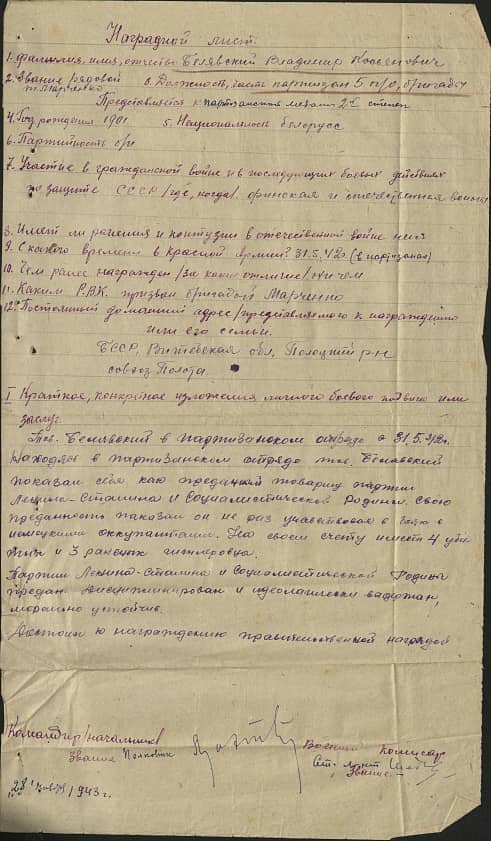 Наградной лист.
1. Фамилия, имя, отчество Белявский Владимир
2. Звание рядовой 3. Должность, часть партизан 5 п/о, бригады
т. Марченко
Представляется к партизанской медали 2й степени
4. Год рождения 1901 5. Национальность белорусс
6. Партийность б/п
7. Участие в гражданской войне и в последующих боевых действиях
по защите СССР /где, когда/. финская и отечественная война
8. Имеет ли ранения и контузии в отечественной войне
9. С какого времени в Красной Армии? 31.5.42г. (в партизанах)
10. Чем ранее награжден /за какие отличие/ ничем
11. Каким Р.В.К. призван бригадой Марченко
12. Постоянный домашний адрес /представляемого к награждению
или его семьи.
БССР, Витебская обл. Полоцкий р-н
совхоз Полота.
I Краткое, конкретное изложения личного боевого подвига или
заслуг
Тов. Белявский в партизанском отряде с 31.5.42г.
Находясь в партизанском отряде тов. Белявский
показал себя как преданный товарищ партии
Ленина-Сталина и Социалистической Родины. Свою
преданность показал он не раз учавствовая в боях с
немецкими оккупантами. На своем счету имеет 4 уби
тых и 3 раненых гитлеровца.
Партии Ленина-Сталина и Социалистической Родины
предан. Дисциплинирован и идеологически выдержан,
морально устойчив.
Достоин к награждению правительственной наградой
Командир /начальник/ Военный Комисар
Звание Полковник Ст. лейт.
Звание
"28" 1943 г.